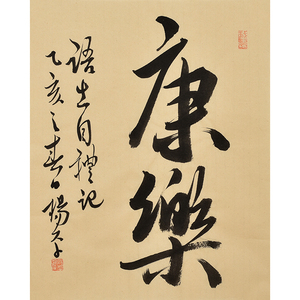 康樂
語出自禮記
乙亥之春日楊子